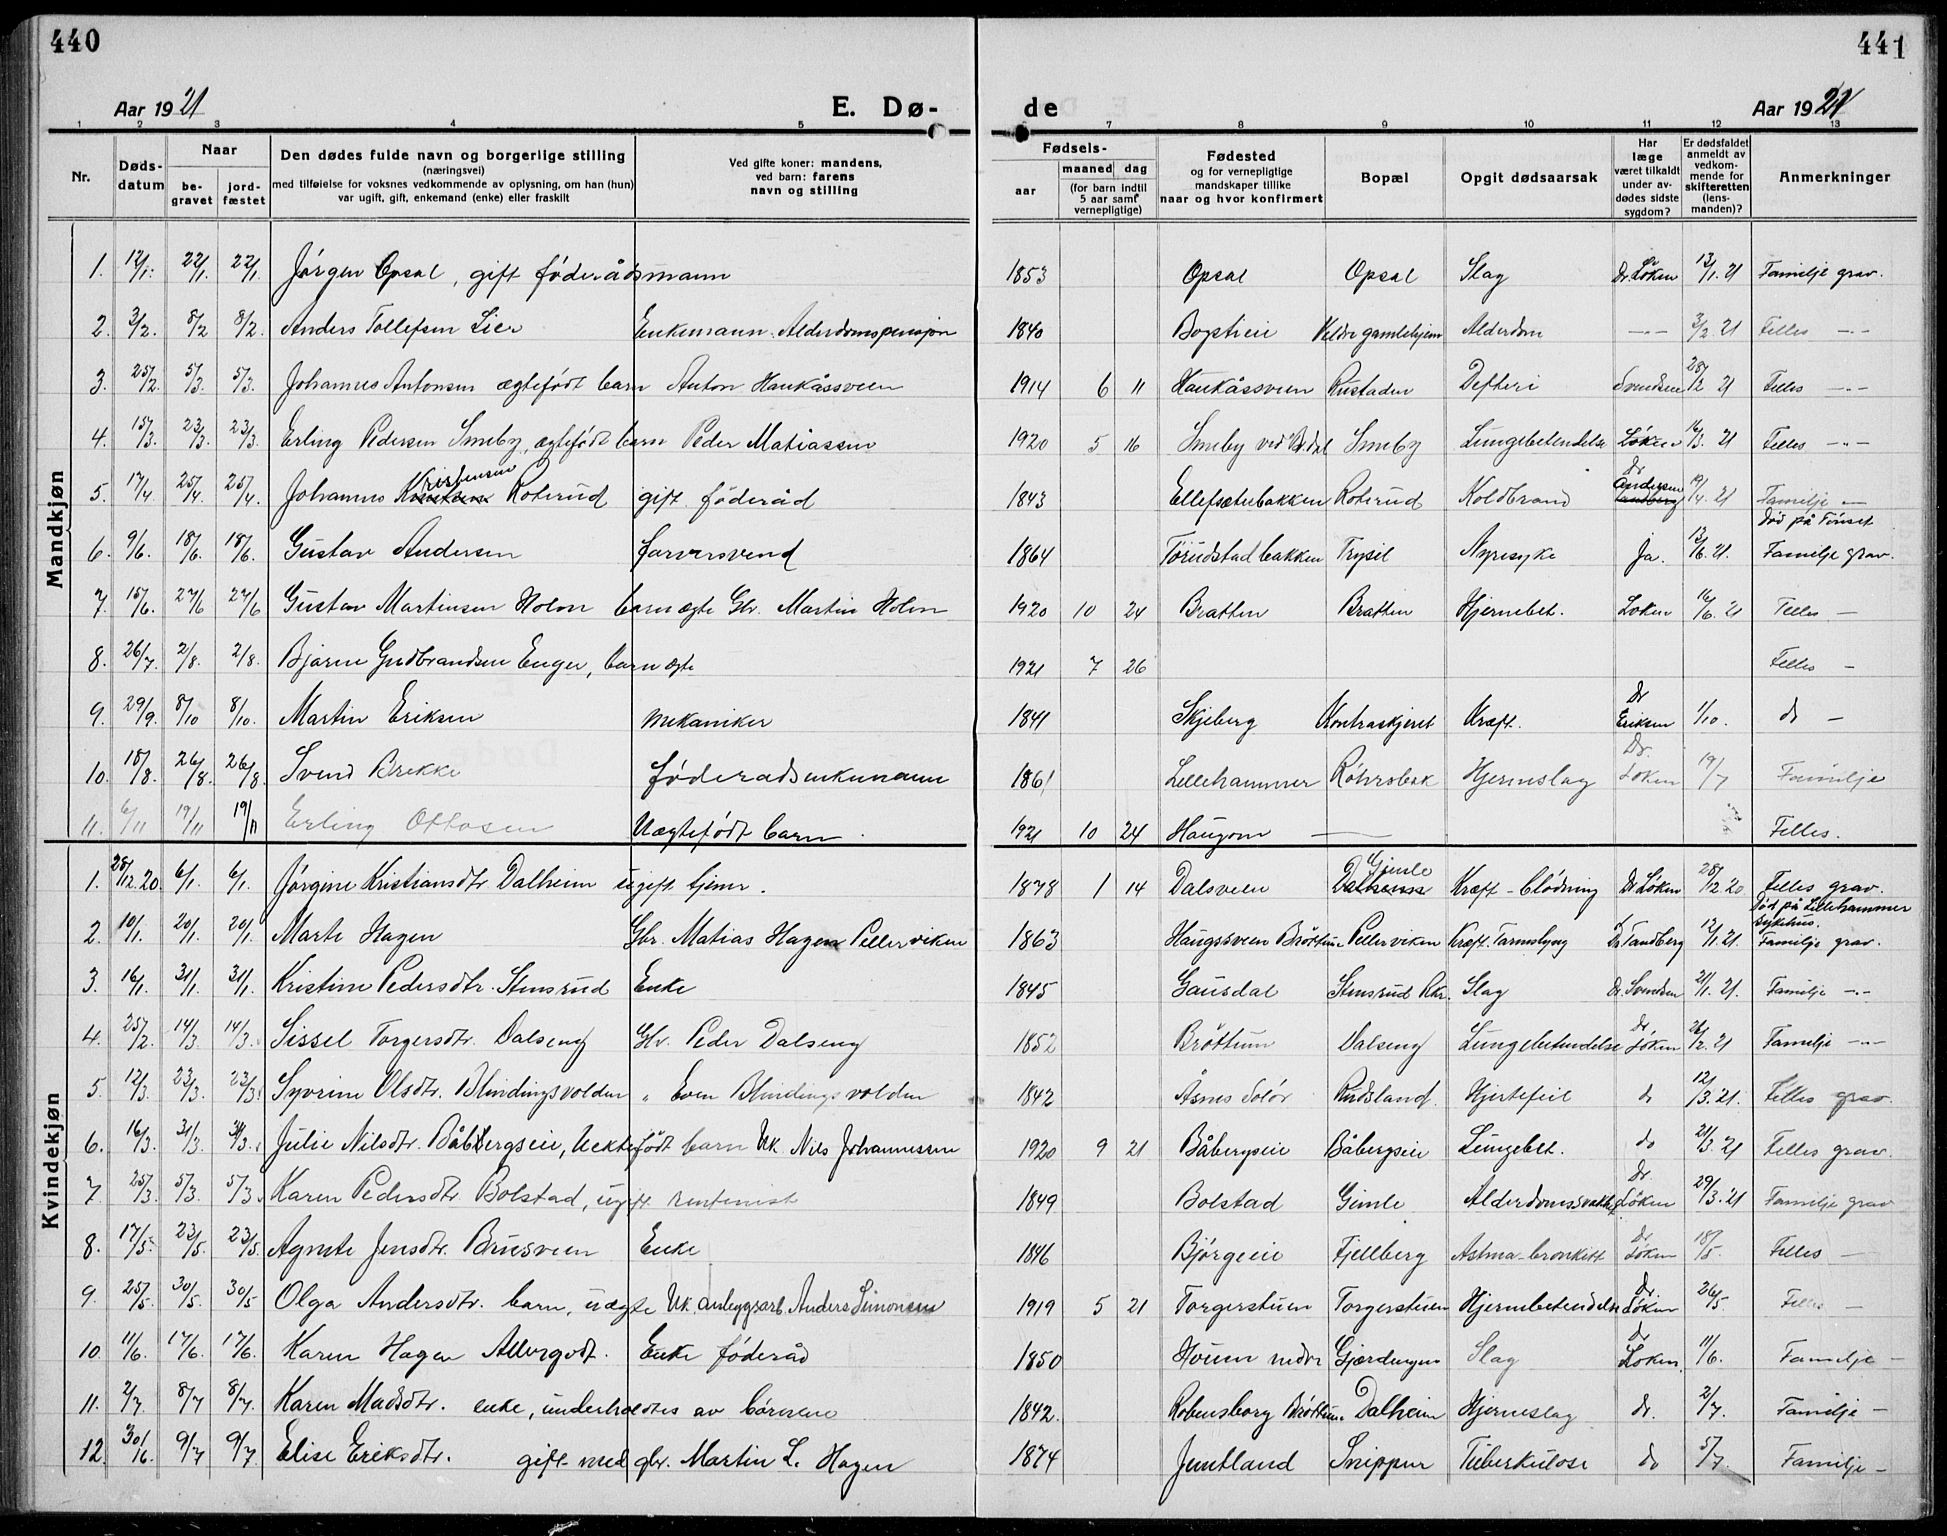 440
441
Aar 1921
E. Dø-
de
Aar 1921
1 2 3 4 5 7 8 9 10 11 12 13
Nr.
Døds-datum
Naar
be-gravet
jord-fæstet
Den dødes fulde navn og borgerlige stilling
(næringsvei)
med tilføielse for voksnes vedkommende av oplysning, om han (hun)
var ugift, gift, enkemand (enke) eller fraskilt
Ved gifte koner: mandens,
ved barn: farens
navn og stilling
Fødsels-
aar
maaned dag
(for barn indtil
5 aar samt
vernepligtige)
Fødested
og for vernepligtige
mandskaper tillike
naar og hvor konfirmert
Bopæl
Opgit dødsaarsak
Har
læge
været tilkaldt
under av-
dødes sidste
sygdom?
Er dødsfaldet
anmeldt av
vedkom-
mende for
skifteretten
(lens-
manden)?
Anmerkninger
Mandkjøn
1. 12/1. 22/1. 22/1. Jørgen Opsal, gift føderådsmann 1853 Opsal Opsal Slag Dr. Løken 13/1. 21 Familje grav.
2. 3/2. 8/2 8/2. Anders Tollefsen Lier Enkemann. Alderdomspensjon 1840 Bogstieie Veldre gamlehjem Alderdom -"- 3/2. 21 Felles -"-
3. 25/2. 5/3. 5/3. Johannes Antonsen ægtefødt barn Anton Haukåssveen 1914 6 11 Haukåssveen Rustaden Difteri Svendsen 28/2 21 Felles -"-
4. 15/3. 23/3. 23/3. Erling Pedersen Smeby, ægtefødt barn Peder Matiassen 1920 5 16 Smeby ved Smeby Lungebetendelse Løken 16/3. 21 Felles -"-
5. 17/4. 25/4. 25/4. Johannes Kristensen Roterud gift føderåd 1843 Ellefsæterbakken Roterud Koldbrand Dr Andersen 19/4. 21 Familje -
død på Tønset
6. 9/6. 18/6. 18/6. Gustav Andersen farversvend 1864 Tørudstadbakken Trysil Nyresyke Ja. 13/6. 21. Familje grav.
7. 15/6. 24/6 24/6 Gustav Martinsen Holen barn ægte Gbr. Martin Holen 1920 10 24 Bratten Bratten Hjernebet. Løken 16/6. 21 Felles -
8. 26/7. 2/8. 2/8. Bjarne Gudbrandsen Enger, barn ægte 1921 7 26 Felles -
9. 29/9. 8/10 8/10. Martin Eriksen mekaniker 1841 Skjeberg Kontraskjæret Kræft. Dr Eriksen 1/10. do -
10. 18/8. 26/8. 26/8 Svend Brekke føderadsenkemann 1861 Lillehammer Röhrsbak Hjerneslag Dr. Løken 19/7 Familje
11. 6/11 19/11 19/11 Erling Ottosen Uægtefødt barn. 1921 10 24 Haugom Felles.
Kvindekjøn
1. 28/12.20. 6/1. 6/1. Jørgine Kristiansdtr. Dalheim ugift tjener. 1878 1 14 Dalsveen Gjørle Kræft - blødning Dr Løken 28/12 20 Felles grav.
død på Lillehammer
sykehus.
2. 10/1. 20/1. 20/1. Marte Hagen Gbr. Matias Hagen Pellerviken 1863 Haugssveen Brøttum Pellerviken Kræft. Dr Tandberg 12/1. 21. Familje grav.
3. 16/1. 31/1. 31/1. Kristine Pedersdtr. Stensrud Enke 1845 Gausdal Stensrud Rkr. Slag Dr. Svendsen 21/1. 21. Familje -"-
4. 25/2. 14/3. 14/3. Sissel Torgersdtr. Dalseng Gbr. Peder Dalseng 1852 Brøttum Dalseng Lungebetendelse Dr Løken 26/2. 21 Familje -"-
5. 12/3. 23/3. 23/3. Syverine Olsdtr. Blindingsvolden " Even Blindingsvolden 1842 Åsnes Solør Rudsland Hjertefeil do 12/3. 21. Felles grav.
6. 16/3. 31/3. 31/3. Julie Nilsdtr. Båbergseie, Uektefødt barn Uk. Nils Johannessen 1920 9 21 Båbergseie Båbergseie Lungebet. do 21/3. 21 Felles grav.
7. 25/3. 5/3. 5/3. Karen Pedersdtr Bolstad, ugift rentenist 1849 Bolstad Gimle Alderdomssvakhet Dr. Løken 29/3. 21 Familje grav
8. 17/5. 23/5. 23/5. Agnete Jensdtr. Brusveen Enke 1846 Bjørgeie Fjellberg Astma-bronkitt Dr. Løken 18/5. Felles -
9. 25/5. 30/5. 30/5 Olga Andersdtr. barn, uægte Uk. anleggsarb. Anders Simonsen 1919 5 21 Torgerstuen Torgerstuen Hjernebetendelse Dr Løken 26/5. Felles -
10. 11/6. 17/6. 17/6. Karen Hagen Enke føderåd 1850 Houen nedre Gjerdengen Slag Dr Løken. 11/6. Familje -
11. 2/7. 8/7 8/7. Karen Madsdtr. enke, underholdtes av børnene 1842. Robensborg Brøttum. Dalheim Hjerneslag do. 2/7. Familje -
12. 30/6. 9/7 9/7. Elise Eriksdtr. gift med gbr. Martin L. Hagen 1874 Jemtland Snippen Tuberkulose do 5/7. Familje -